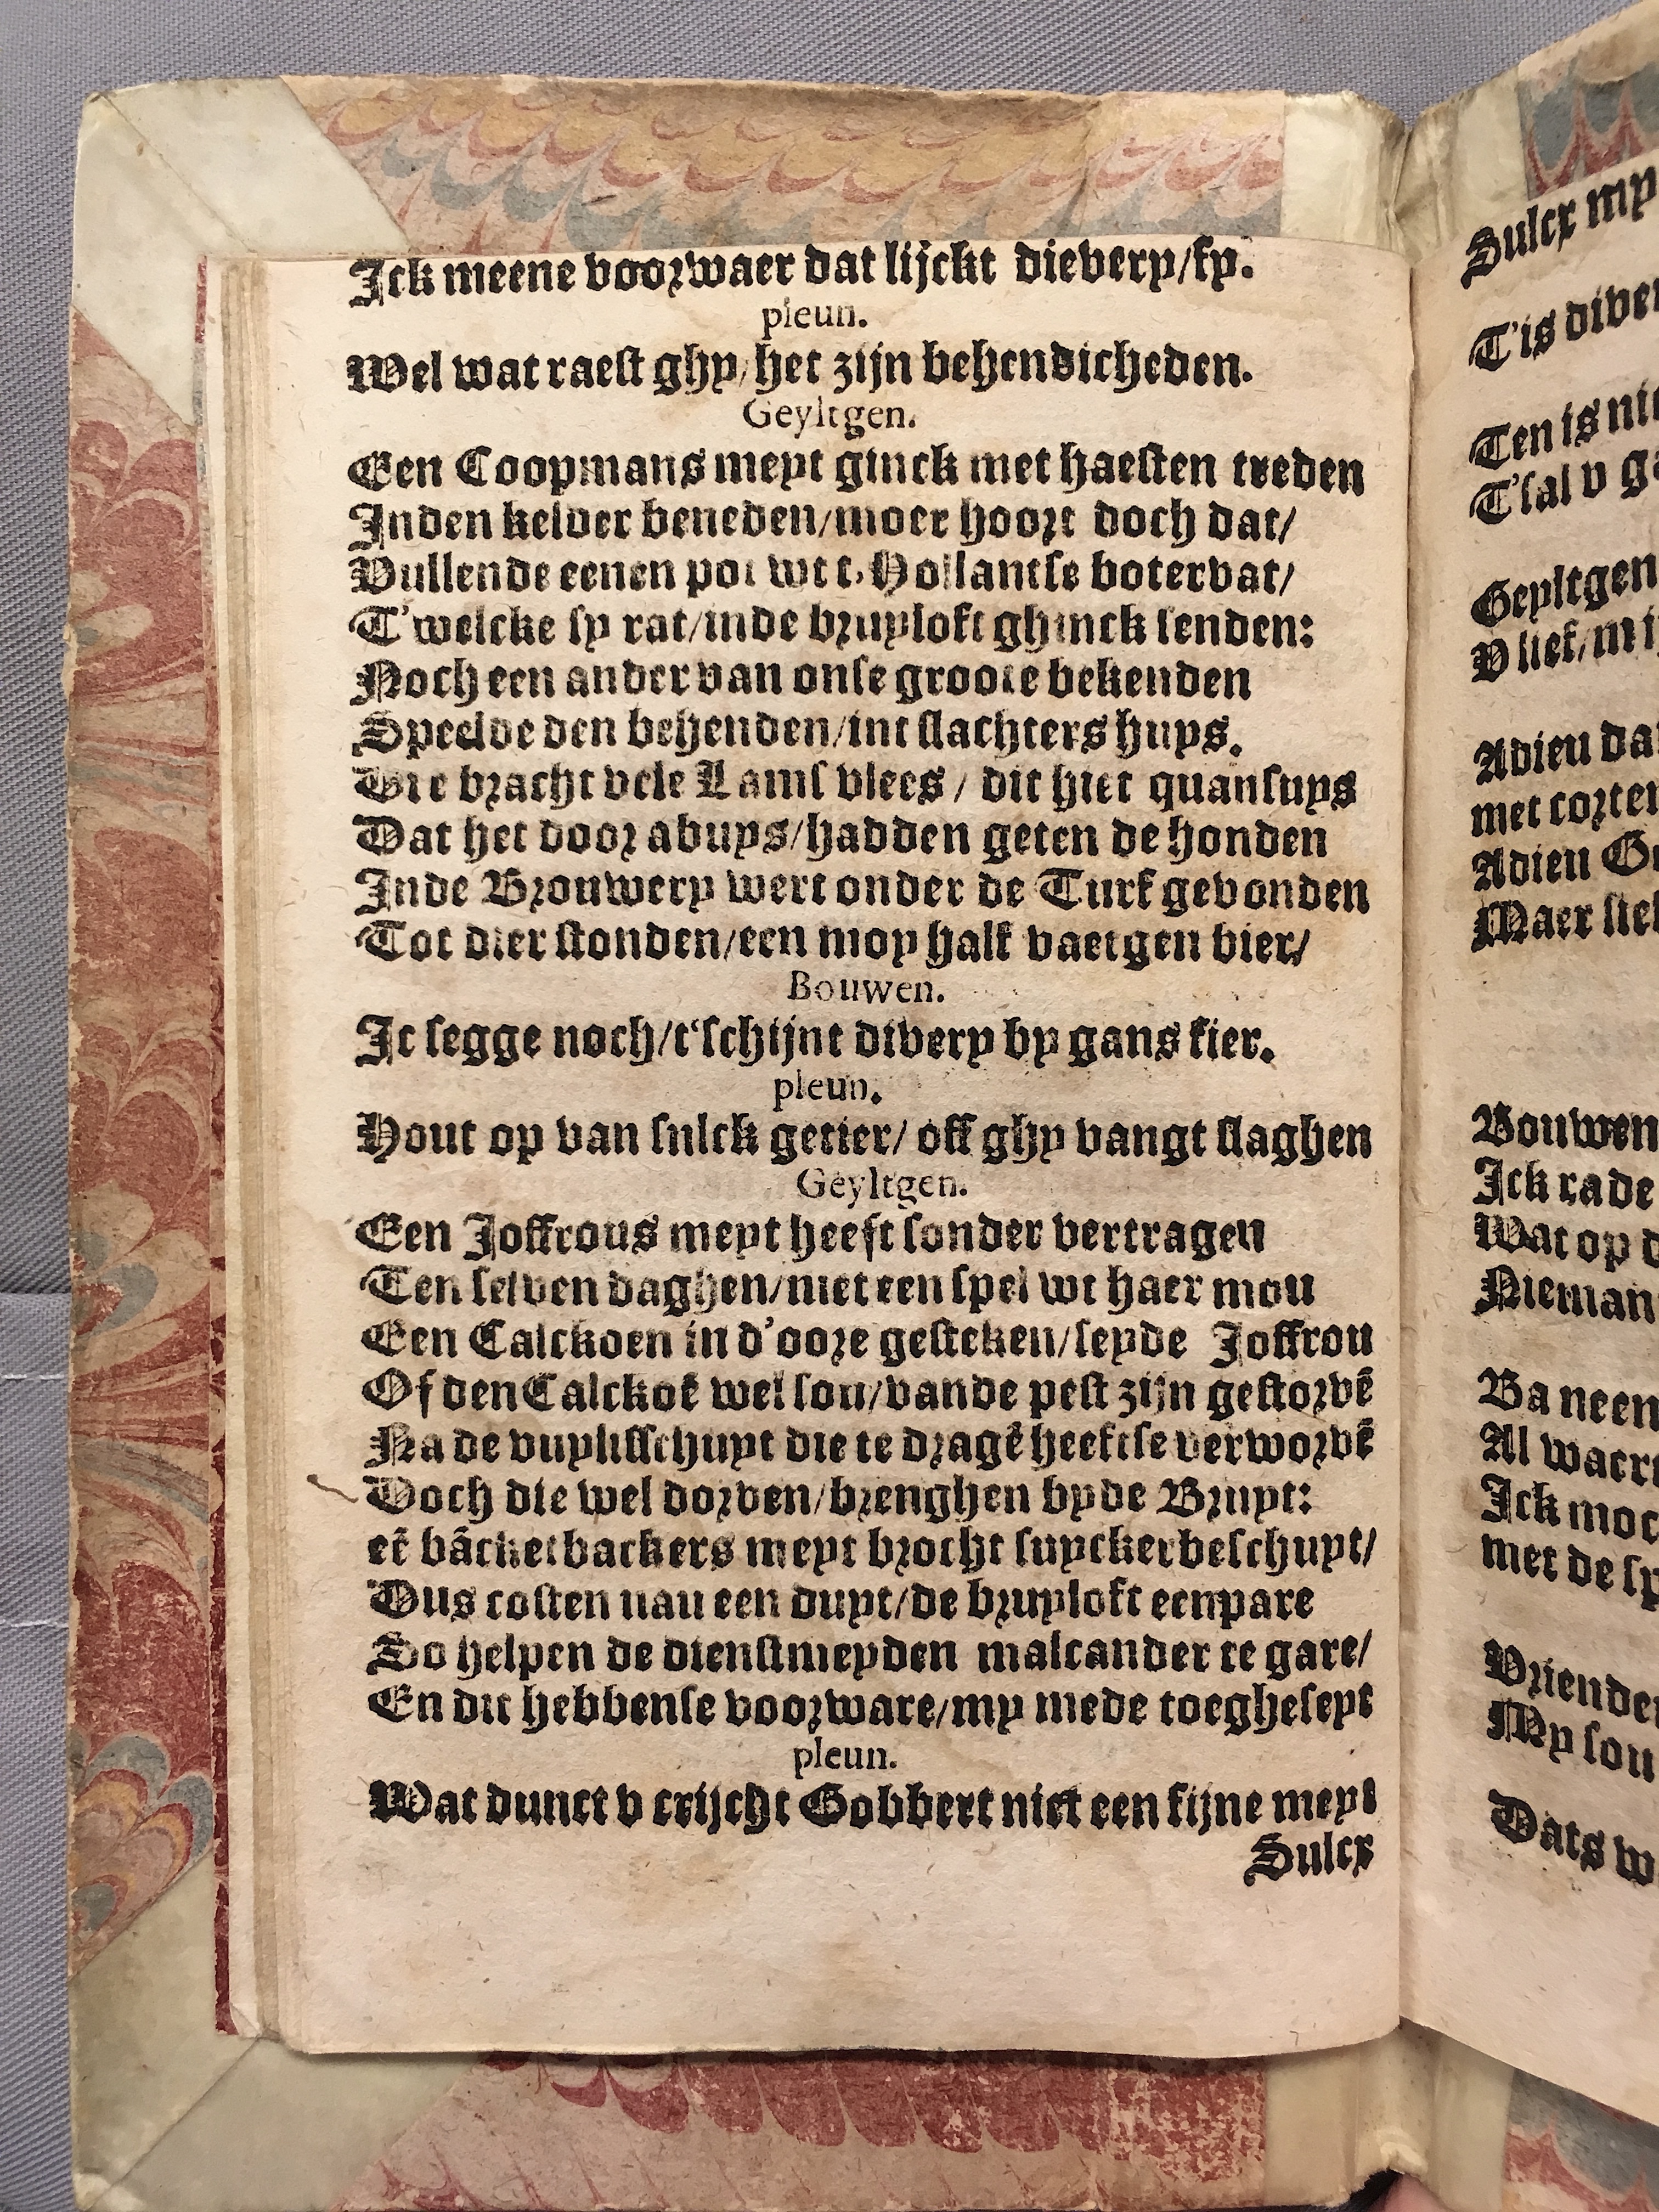 Ick meene voorwaer dat lijckt dievery/fy.
pleun.
Wel wat raest ghy/het zijn behendicheden.
Geyltgen.
Een Coopmans meyt ginck met haesten treden
Inden kelder beneden/moer hoort doch dat/
Vullende eenen pot wt t'Hollantse botervat/
T'welcke sy rat/inde bruyloft ghinck senden:
Noch een ander van onse groote bekenden
Speelde den behenden/int slachters huys.
Die bracht vele Lams vlees/dit hiet quansuys
Dat het door abuys/hadden geten de honden
Inde Brouwery wert onder de Turf gevonden
Tot dier stonden/een moy half vaetgen bier/
Bouwen.
Ic segge noch/t'schijnt divery by gans fier.
pleun.
Hout op van sulck getier/ off ghy vangt slaghen
Geyltgen.
Een Joffrous meyt heeft sonder vertragen
Ten selven daghen/niet een spel wt haer mou
Een Calckoen in d'oore gesteken/seyde Joffrou
Of den Calckoē wel sou/vande pest zijn gestorvē
Na de vuylisschuyt die te dragē heeftse verworvē
Doch die wel dorven/brenghen by de Bruyt:
eē bāckerbackers meyt brocht suyckerbeschuyt/
Dus costen nau een duyt/de bruyloft eenpare
So helpen de dienstmeyden malcander te gare/
En dit hebbense voorware/my mede toegheseyt
pleun.
Wat dunct v crijcht Gobbert niet een fijne meyt
Sulcx
Sulcx my
T'is diver
Ten is
T'sal v
Geyltgen
V lief/
Adieu
met
Adieu
Maer
Bouwen
Ick rade
Wat op
Nieman
Ba neen
Al
Ick
met de
Vrienden
My sou
Dats